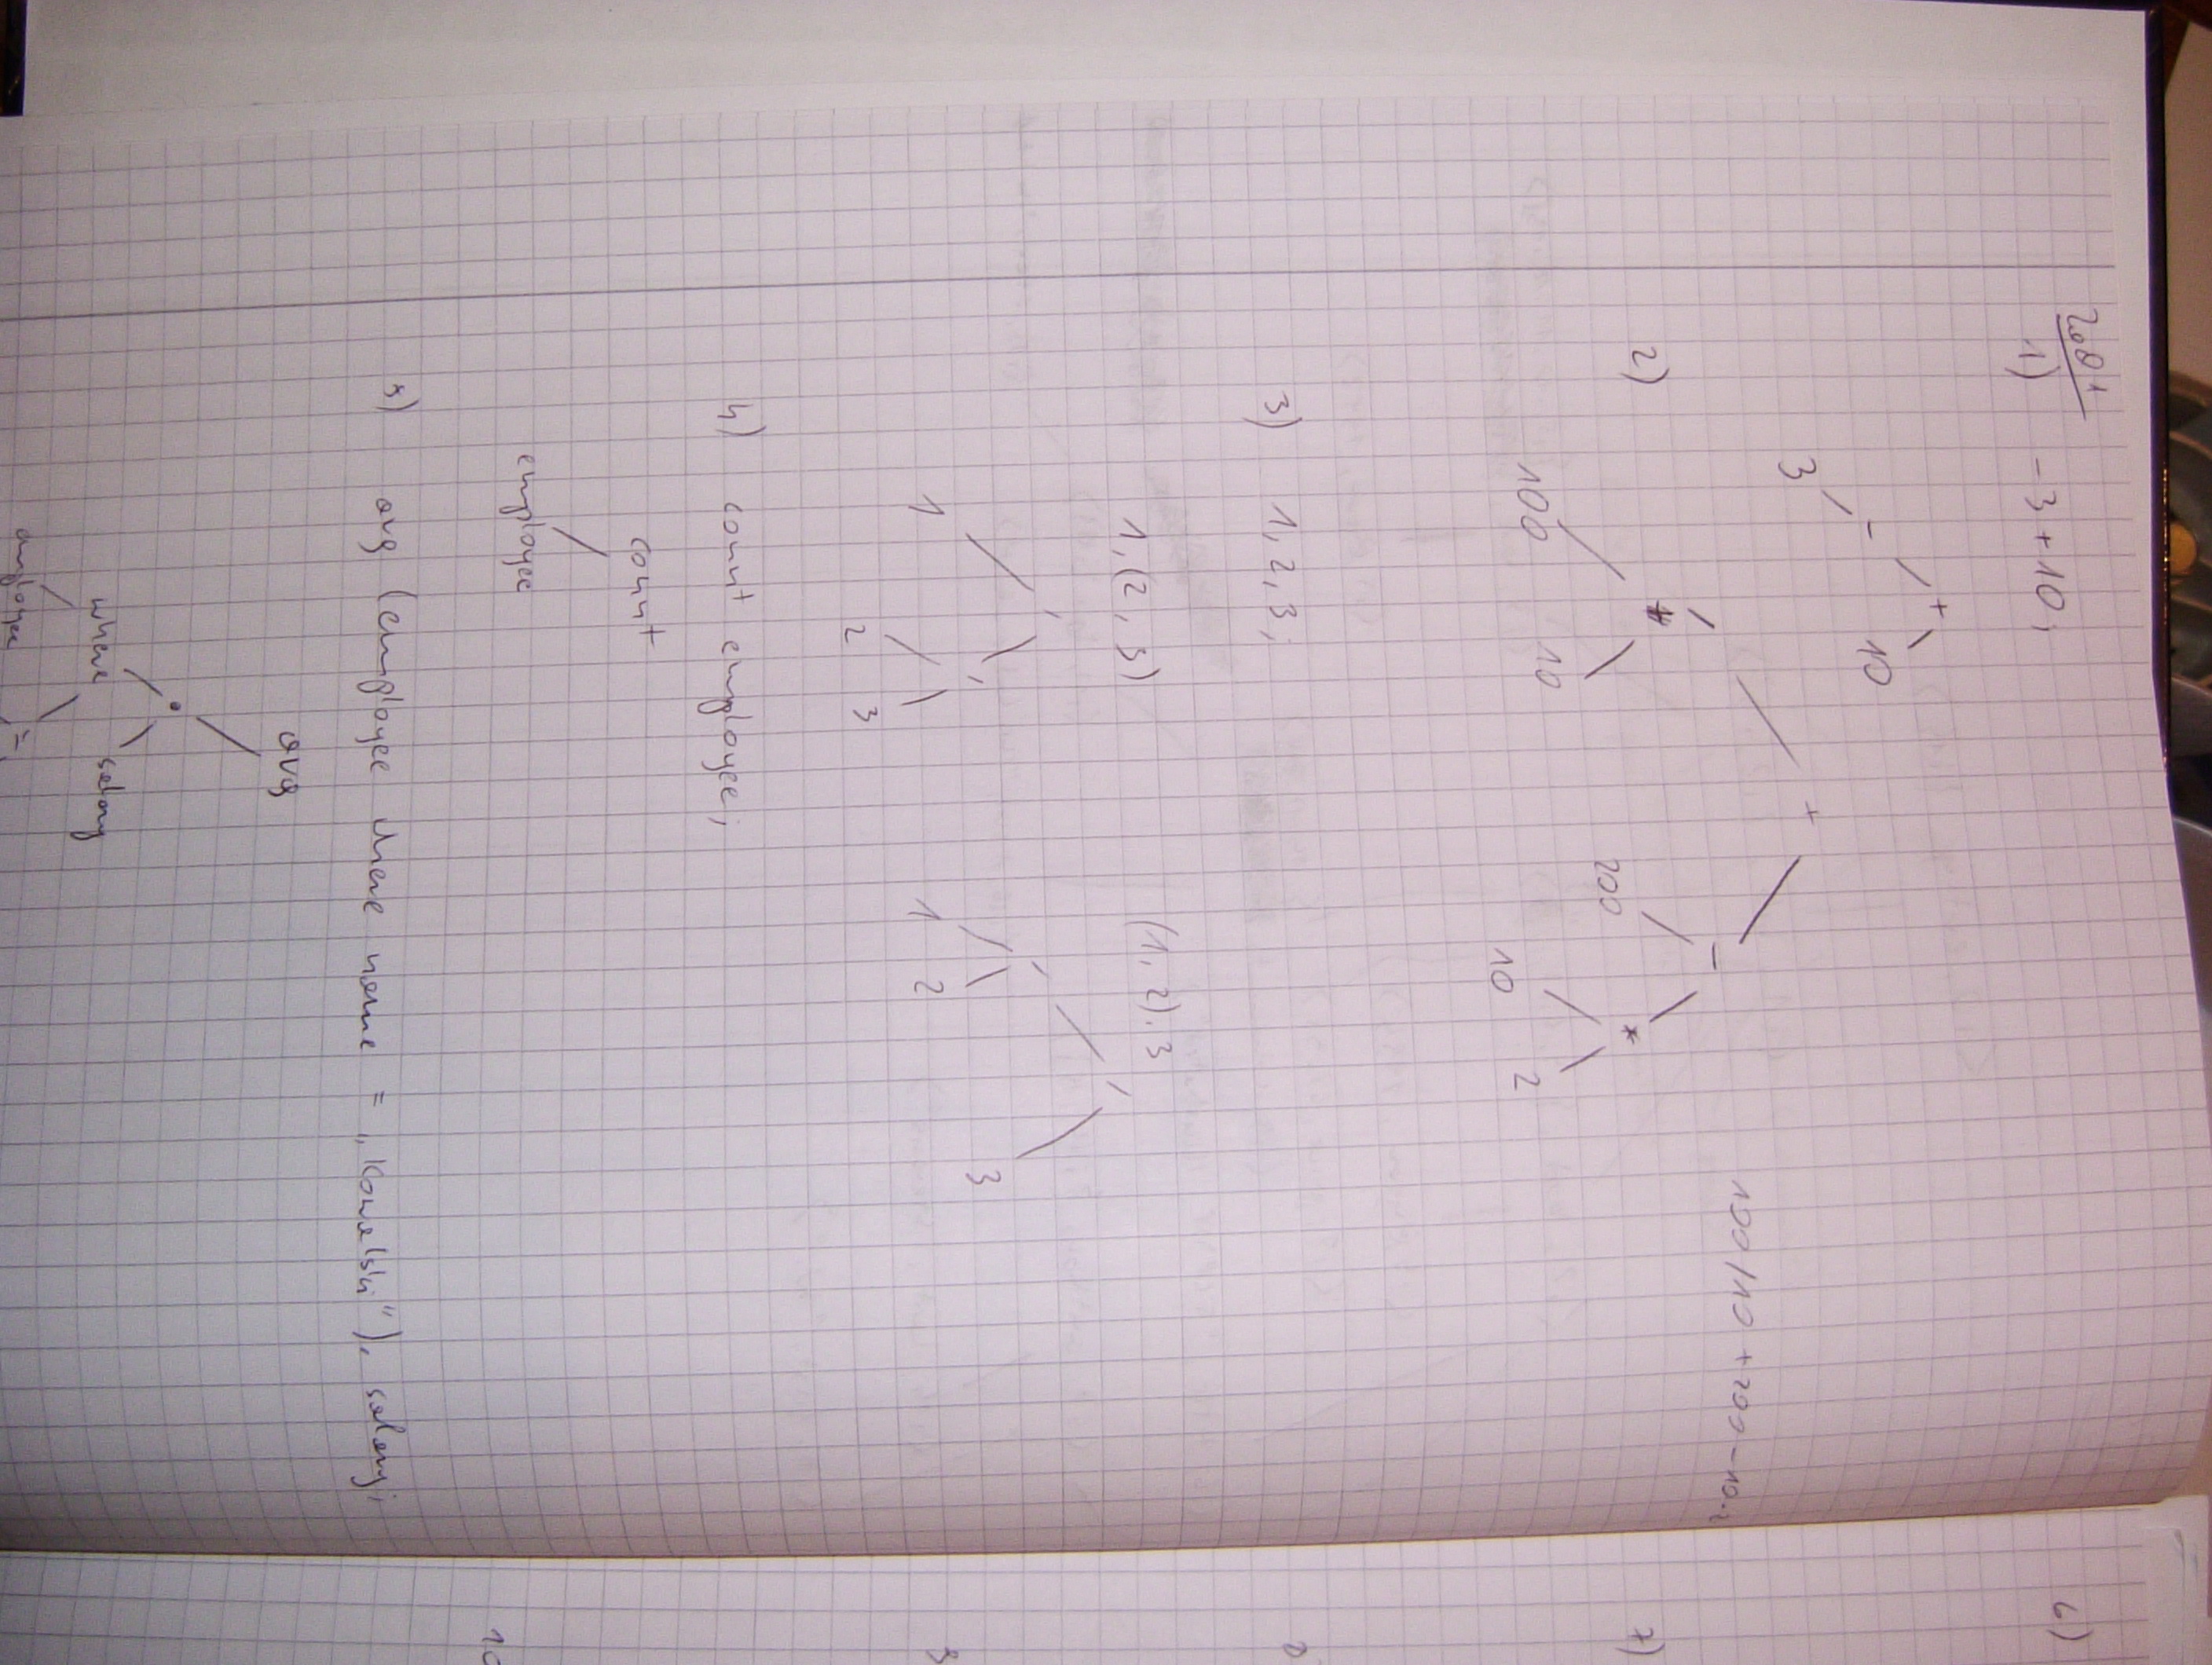 1) -3+10;
+
- 10
3
100/10+200-10·2
+
* -
100 10 200 *
10 2
3) 1, 2, 3;
1, (2, 3) (1, 2), 3
, ,
1 , , 3
2 3 1 2
4) count employee;
count
employee
5) avg (employee where name = „Kowalski”). salary;
avg
.
where salary
employee =
6)
7)